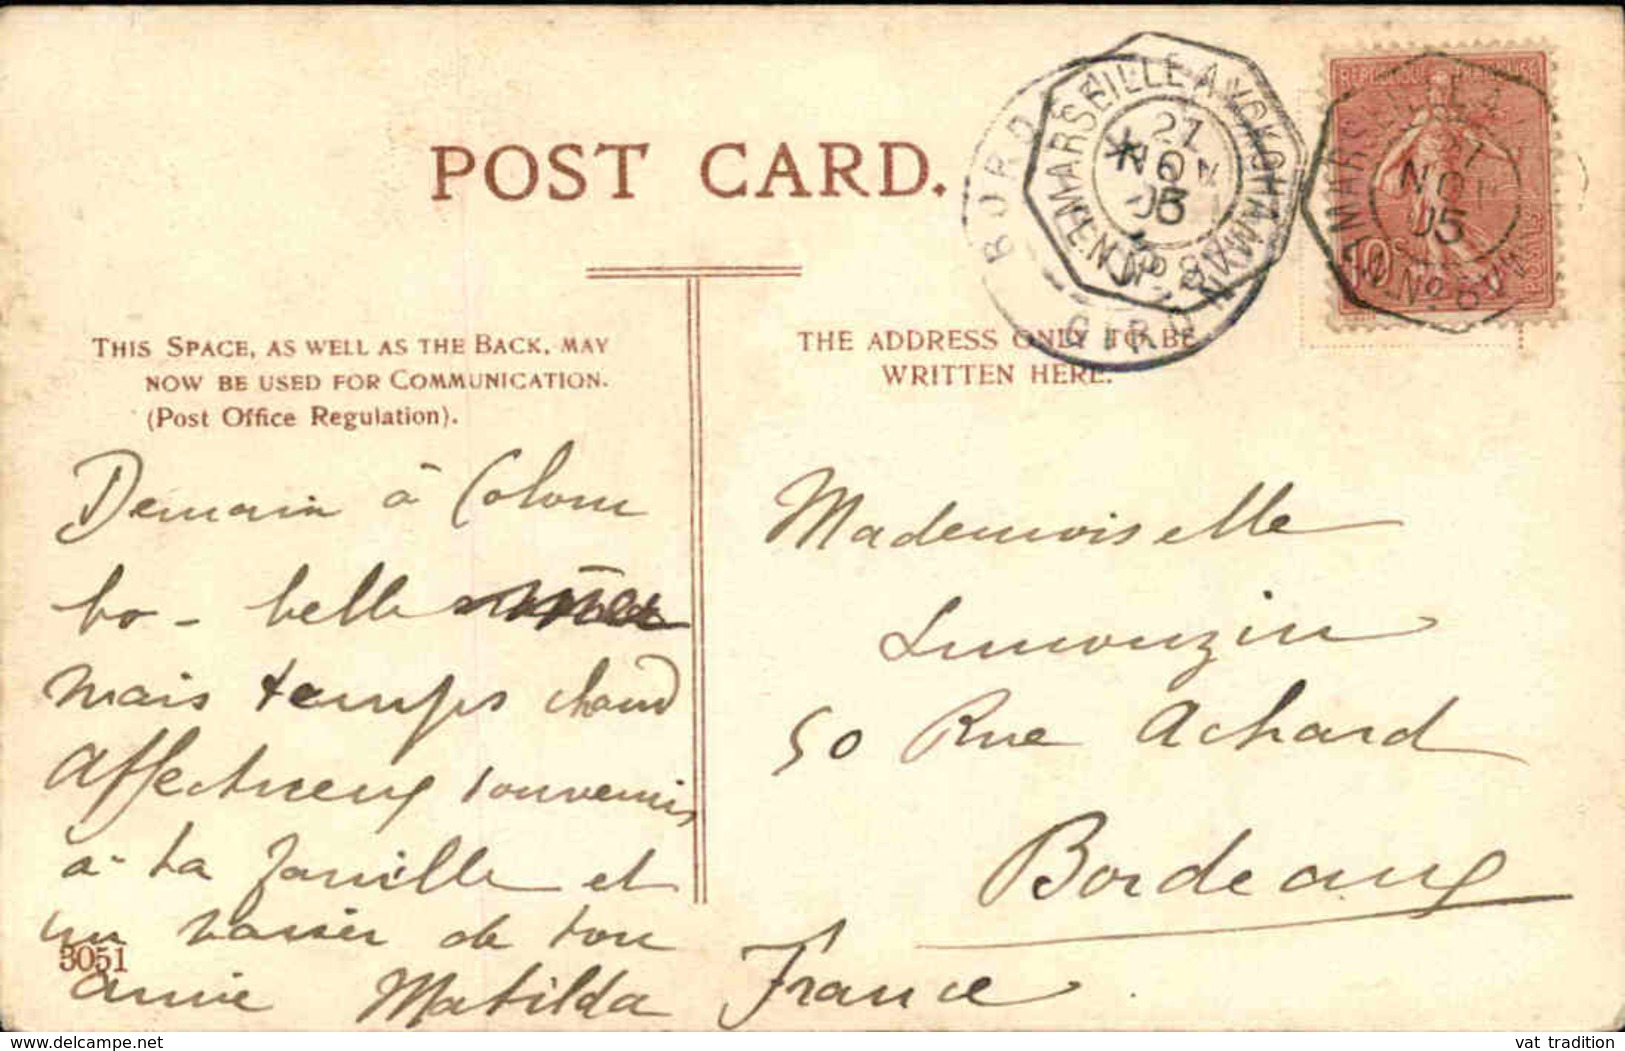 POST CARD.
THIS SPACE, AS WELL AS THE BACK, MAY
NOW BE USED FOR COMMUNICATION.
(Post Office Regulation).
THE ADDRESS ONLY TO BE
WRITTEN HERE.
MARSEILLE A YOKOHAMA
21
NOV
05
BORD GIRON
MARSEILLE A
NOV
05
10
Demain à Colom
bo - belle mer
mais temps chaud
Affectueux souvenirs
à ta famille et
un baiser de ton
amie Matilda
3051
Mademoiselle
Limouzin
50 Rue Achard
Bordeaux
France
vat tradition
delcampe.net